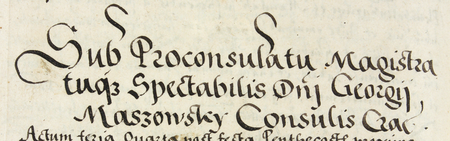 Sub Proconsulatu Magistra
tuq₃ Spectabilis Dnj Georgij
Maszowsky Consulis Crac
Actum feria quarta post festa Penthecoste proxime